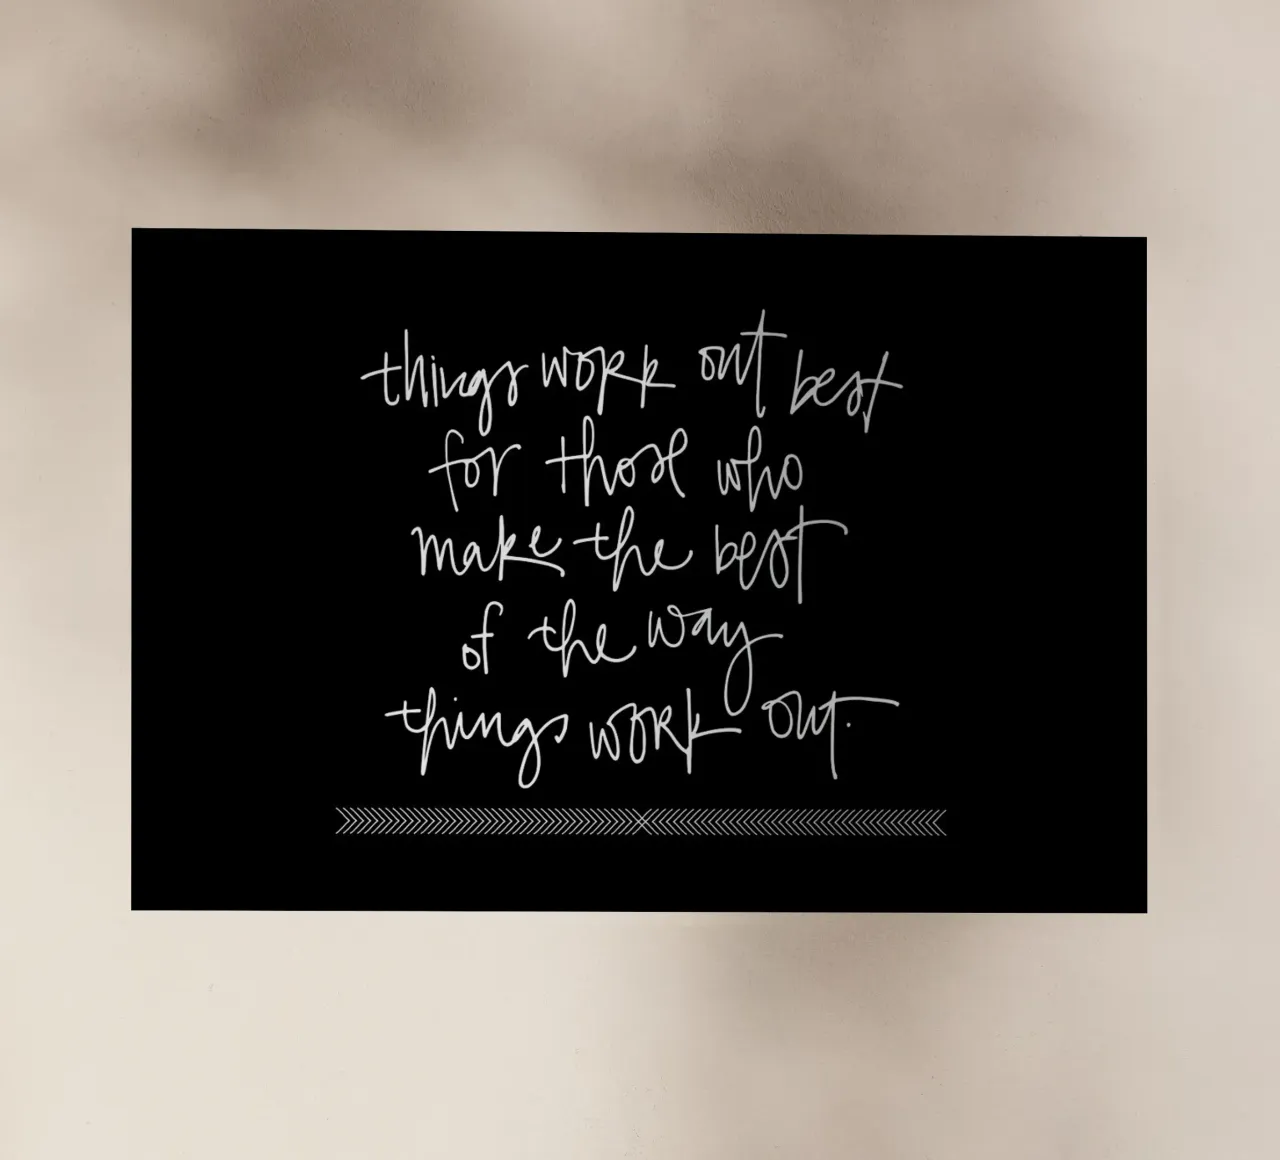 things work out best
for those who
make the best
of the way
things work out.